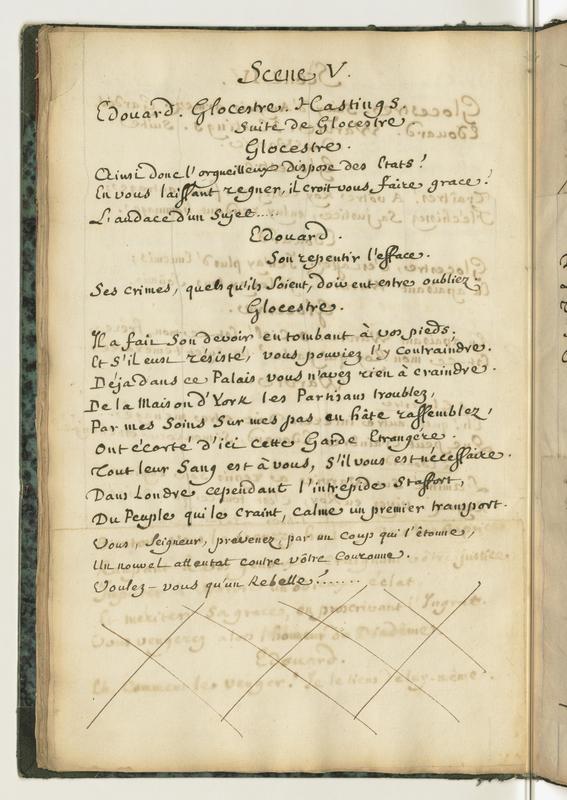 Scene V.
Edouard. Glocestre. Hastings.
Suite de Glocestre.
Glocestre.
Ainsi donc l'orgueilleux dispose des Etats!
En vous laissant regner, il croit vous faire grace!
L'audace d'un Sujet.....
Edouard.
Son repentir l'efface.
Ses crimes, quels qu'ils Soient, doivent estre oubliez
Glocestre.
Il a fait Son devoir en tombant à vos pieds.
Et S'il eust résisté, vous pouviez l'y contraindre.
Déja dans ce Palais vous n'avez rien à craindre.
De la Maison d'York les Partisans troublez,
Par mes Soins Sur mes pas en hâte rassemblez,
Ont écarté d'ici cette Garde Etrangére.
Tout leur Sang est à vous, S'il vous est nécessaire.
Dans Londre cependant l'intrépide Staffort,
Du Peuple qui le craint, calme un premier transport.
Vous, Seigneur, prevenez, par un coup qui l'étonne,
Un nouvel attentat contre vôtre Couronne.
Voulez-vous qu'un Rebelle?.......